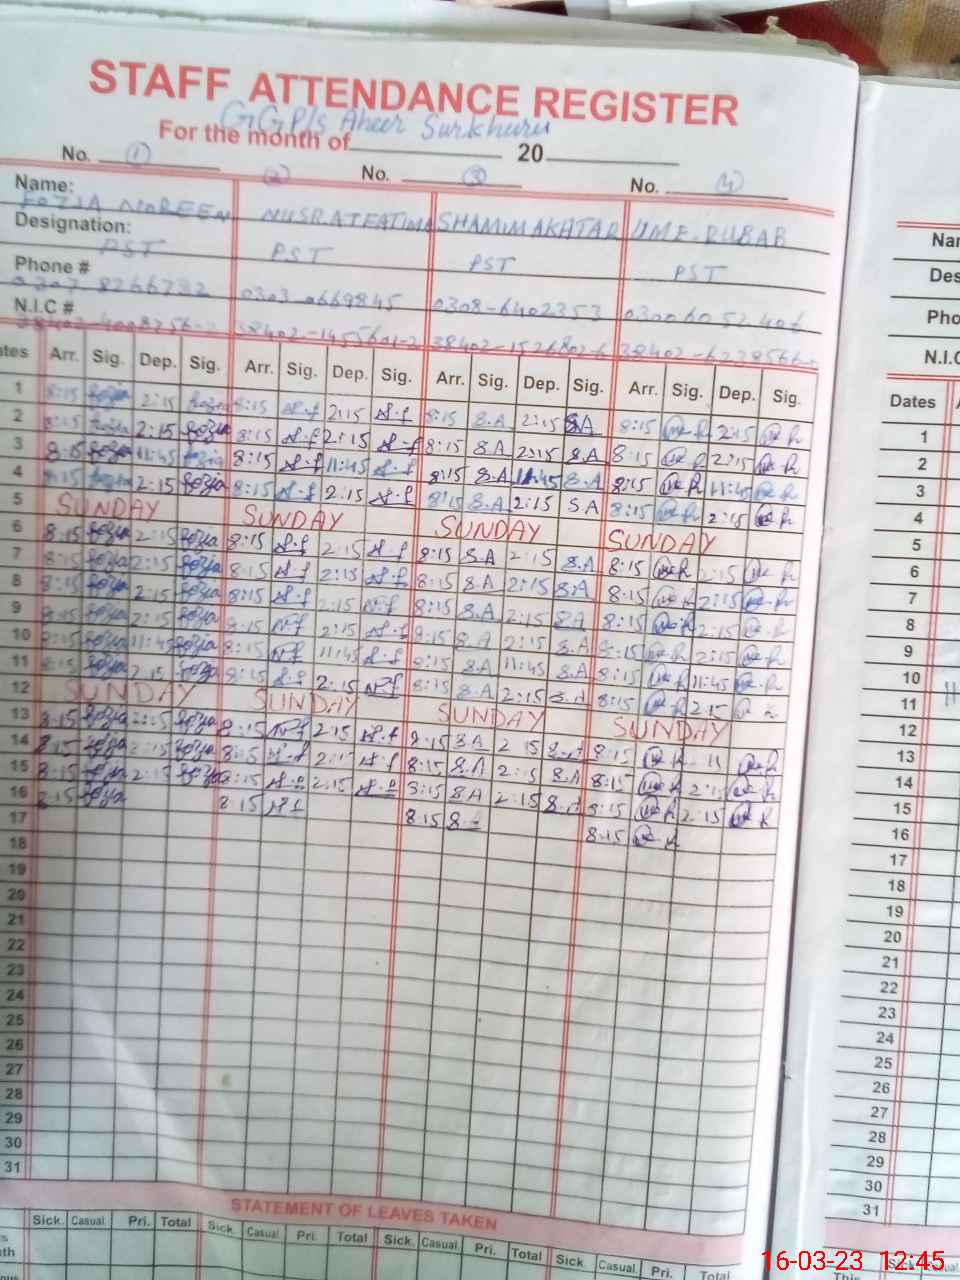 STAFF ATTENDANCE REGISTER
GGP/s Aheer Surkhuru
For the month of 20
No. 1 2 No. 3 No. 4
Name:
FOZIA NOREEN NUSRAT FATIMA SHAMIM AKHTAR UME-RUBAB
Designation:
PST PST PST PST
Phone #
0307 8266732 0303 0669845 0308-6402353 0300 60 52 406
N.I.C #
Arr. Sig. Dep. Sig. Arr. Sig. Dep. Sig. Arr. Sig. Dep. Sig. Arr. Sig. Dep. Sig.
1 8:15 fozia 2:15 fozia 8:15 N.f 2:15 N.f 8:15 S.A 2:15 S.A 8:15 2:15
2 8:15 fozia 2:15 fozia 8:15 N.f 2:15 N.f 8:15 S.A 2:15 S.A 8:15 2:15
3 8:15 fozia 11:45 fozia 8:15 N.f 11:45 N.f 8:15 S.A 11:45 S.A 8:15 11:45
4 8:15 fozia 2:15 fozia 8:15 N.f 2:15 N.f 8:15 S.A 2:15 S.A 8:15 2:15
5 SUNDAY SUNDAY SUNDAY SUNDAY
6 8:15 fozia 2:15 fozia 8:15 N.f 2:15 N.f 8:15 S.A 2:15 S.A 8:15 2:15
7 8:15 fozia 2:15 fozia 8:15 N.f 2:15 N.f 8:15 S.A 2:15 S.A 8:15 2:15
8 8:15 fozia 2:15 fozia 8:15 N.f 2:15 N.f 8:15 S.A 2:15 S.A 8:15 2:15
9 8:15 fozia 2:15 fozia 8:15 N.f 2:15 N.f 8:15 S.A 2:15 S.A 8:15 2:15
10 8:15 fozia 11:45 fozia 8:15 N.f 11:45 N.f 8:15 S.A 11:45 S.A 8:15 11:45
11 8:15 fozia 2:15 fozia 8:15 N.f 2:15 N.f 8:15 S.A 2:15 S.A 8:15 2:15
12 SUNDAY SUNDAY SUNDAY SUNDAY
13 8:15 fozia 2:15 fozia 8:15 N.f 2:15 N.f 8:15 S.A 2:15 S.A 8:15 11
14 8:15 fozia 2:15 fozia 8:15 N.f 2:15 N.f 8:15 S.A 2:15 S.A 8:15 2:15
15 8:15 fozia 2:15 fozia 8:15 2:15 8:15 S.A 2:15 S.A 8:15 2:15
16 8:15 fozia 8:15 N.f 8:15 S.A 8:15
17
18
19
20
21
22
23
24
25
26
27
28
29
30
31
STATEMENT OF LEAVES TAKEN
Sick. Casual. Pri. Total Sick. Casual. Pri. Total Sick. Casual. Pri. Total Sick. Casual. Pri. Total
Dates
1
2
3
4
5
6
7
8
9
10
11
12
13
14
15
16
17
18
19
20
21
22
23
24
25
26
27
28
29
30
31
This
16-03-23 12:45